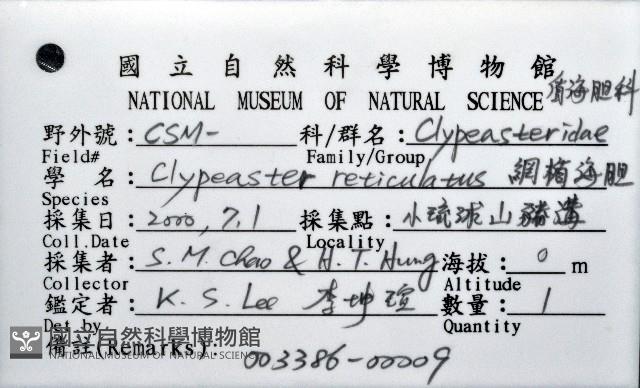 國立自然科學博物館
NATIONAL MUSEUM OF NATURAL SCIENCE 盾海胆科
野外號：CSM- 科/群名：Clypeasteridae
Field# Family/Group
學 名：Clypeaster reticulatus 網楯海胆
Species
採集日：2000, 7.1 採集點：小琉球山豬溝
Coll.Date Locality
採集者：S. M. Chao & H. T. Hung 海拔：0 m
Collector Altitude
鑑定者：K. S. Lee 李坤瑄 數量：1
Det.by Quantity
備註(Remarks): 003386-00009
國立自然科學博物館
NATIONAL MUSEUM OF NATURAL SCIENCE